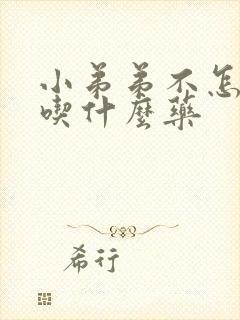 小弟弟不怎
喫什麼藥
希行